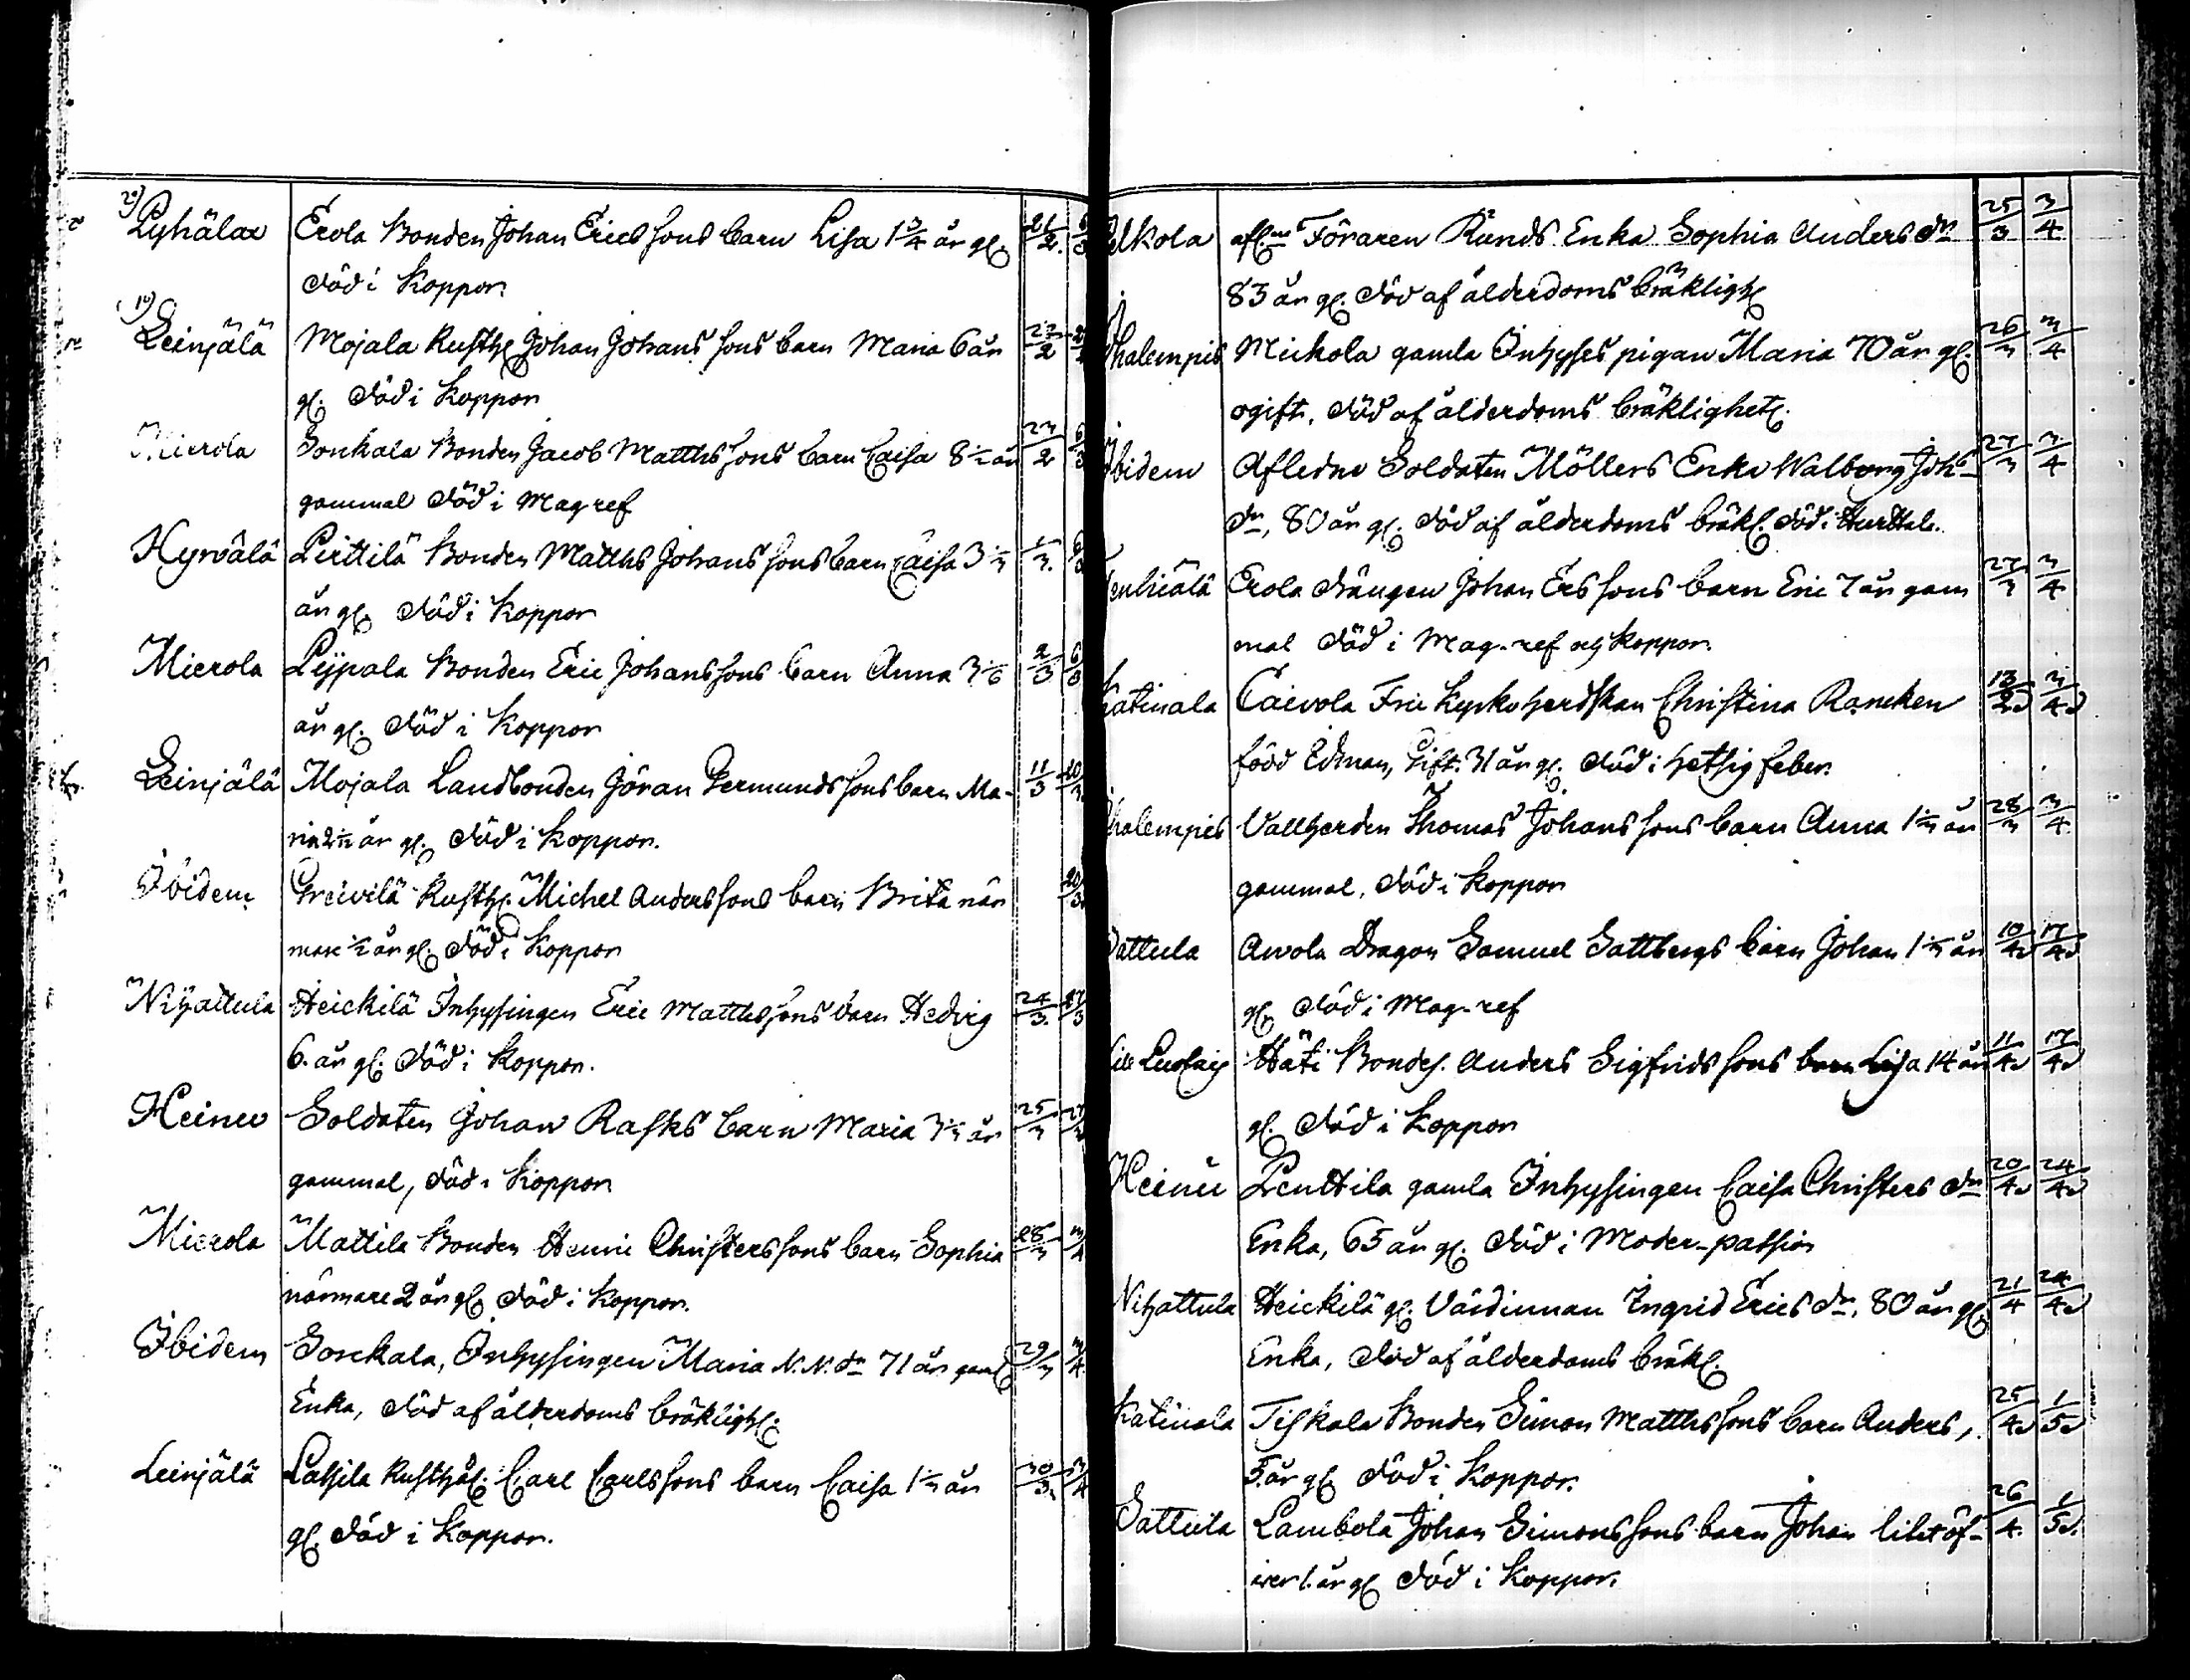 2) Lyhälax Erola Bonden Johan Ericssons barn Lisa 1 3/4 år gl. 21/2
död i Koppor.
1) Leinjälä Mojala Rusth. Johan Johanssons barn Maria 6 år 22/2
gl. död i Koppor
Mierola Sonkala Bonden Jacob Matthssons barn Caisa 8 1/2 år 23/2
gammal död i Mag ref
Hyrvälä Perttilä Bonden Matths Johanssons barn Caisa 3 1/3
år gl. död i Koppor
Mierola Leypala Bonden Eric Johanssons barn Anna 3 1/6 2/3 6/3
år gl. död i Koppor
Leinjälä Mojala Landbonden Göran Permundssons barn Ma- 11/3 20/3
ria 2 1/2 år gl. död i Koppor.
Ibidem Greivilä Rusth. Michel Anderssons barn Brita när 20/3
mare 1/2 år gl. död i Koppor
Nihattula Heickilä Inhysingen Eric Matthssons barn Hedvig 24/3 27/3
6. år gl. död i Koppor.
Heinu Soldaten Johan Rasks barn Maria 3 1/2 år 25/3 27/3
gammal, död i Koppor
Mierola Mattila Bonden Henric Christerssons barn Sophia 28/3 3/4
närmare 2 år gl. död i Koppor.
Ibidem Sonckala, Inhysingen Maria N.N. dr 71 år gaml 29/3 3/4
Enka, död af ålderdoms bräkligh.
Leinjälä Lassila Rusthål. Carl Carlssons barn Caisa 1 1/2 år 30/3 3/4
gl. död i Koppor.
elkola afl:ne Föraren Runds Enka Sophia Anders dr 25/3 3/4
83 år gl. död af ålderdoms bräkligh
Thalempis Mickola gamla Inhyses pigan Maria 70 år gl. 26/3 3/4
ogift, död af ålderdoms bräklighet.
Ibidem Afledne Soldaten Möllers Enka Walborg Joh- 27/3 3/4
dr, 80 år gl. död af ålderdoms bräkl. död i Hurttala.
enhiälä Erola drängen Johan Erssons barn Eric 7 år gam 27/3 3/4
mal död i Mag-ref och Koppor.
Katinala Caivola Fru Kyrkoherdskan Christina Rancken 13/2 3/4
född Edman, Gift. 31 år gl. död i hetsig feber.
Thalempis Vallherden Thomas Johanssons barn Anna 1 2/3 år 28/3 3/4
gammal, död i Koppor
Sattula Awola Dragon Samuel Sattbergs barn Johan 1 1/3 år 10/4 17/4
gl. död i Mag-ref
Häti Bondes. Anders Sigfridssons barn Lisa 14 år 11/4 17/4
gl. död i Koppor
Heinu Penttila gamla Inhysingen Caisa Christers dr 20/4 24/4
Enka, 65 år gl. död i Moder-passion
Nihattula Heickilä gl. Värdinnan Ingrid Erics dr. 80 år gl. 21/4 24/4
Enka, död af ålderdoms bräkl.
Katinala Tiskala Bonden Simon Matthssons barn Anders, 25/4 1/5
5. år gl. död i Koppor.
Sattula Lambola Johan Simonssons barn Johan litet öf- 26/4 1/5
wer 1. år gl. död i Koppor.